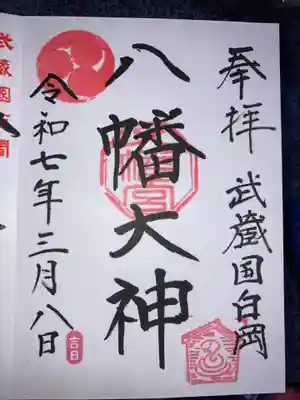 奉拝 武蔵国白岡
八幡大神
令和七年三月八日
吉日
武蔵国